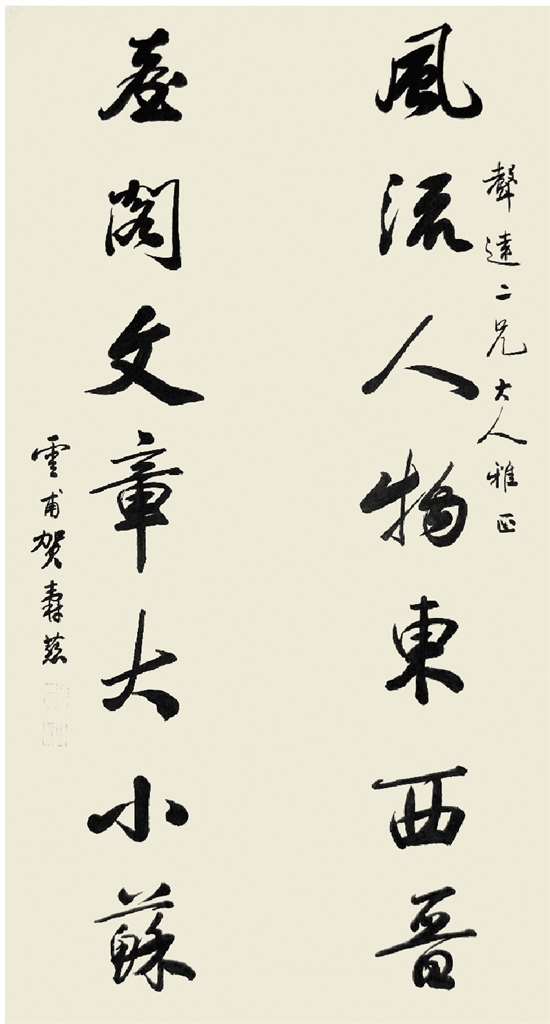 聲遠二兄大人雅正
風流人物東西晉
臺閣文章大小蘇
雲甫賀壽慈